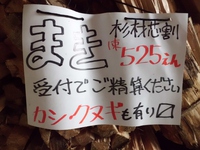 まき
杉材芯割
1束525えん
受付でご精算ください
カシ・クヌギも有り〼